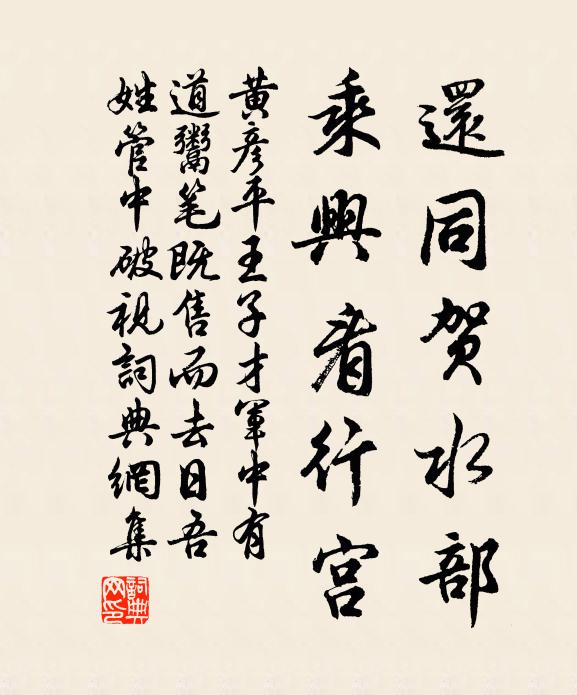 還同贺水部
乘興看行宫
黄彦平王子才軍中有
道鬻笔既售而去日吾
姓管中破視詞典網集
詞典网印